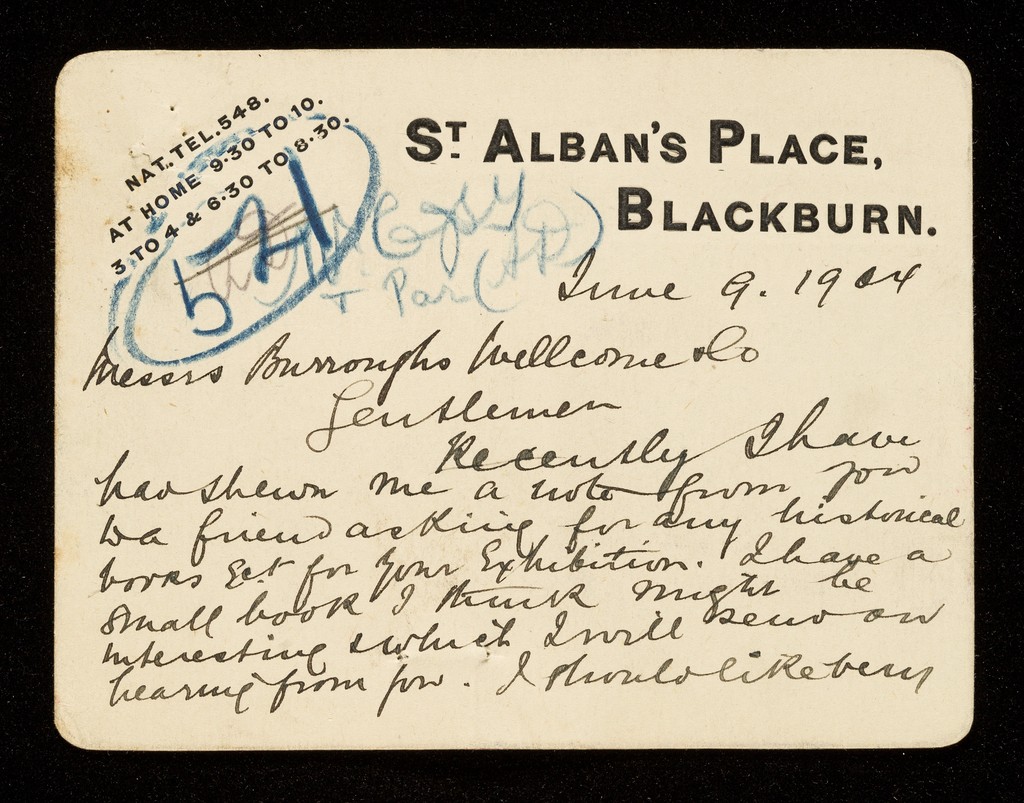 NAT. TEL. 548.
AT HOME 9·30 TO 10.
3 TO 4 & 6·30 TO 8·30.
ST ALBAN'S PLACE,
BLACKBURN.
521
June 9. 1904
Messrs Burroughs Wellcome & Co
Gentlemen
Recently I have
had shewn me a note from you
to a friend asking for any historical
books Ect for your Exhibition. I have a
small book I think might be
interesting & which I will send on
hearing from you. I should like very